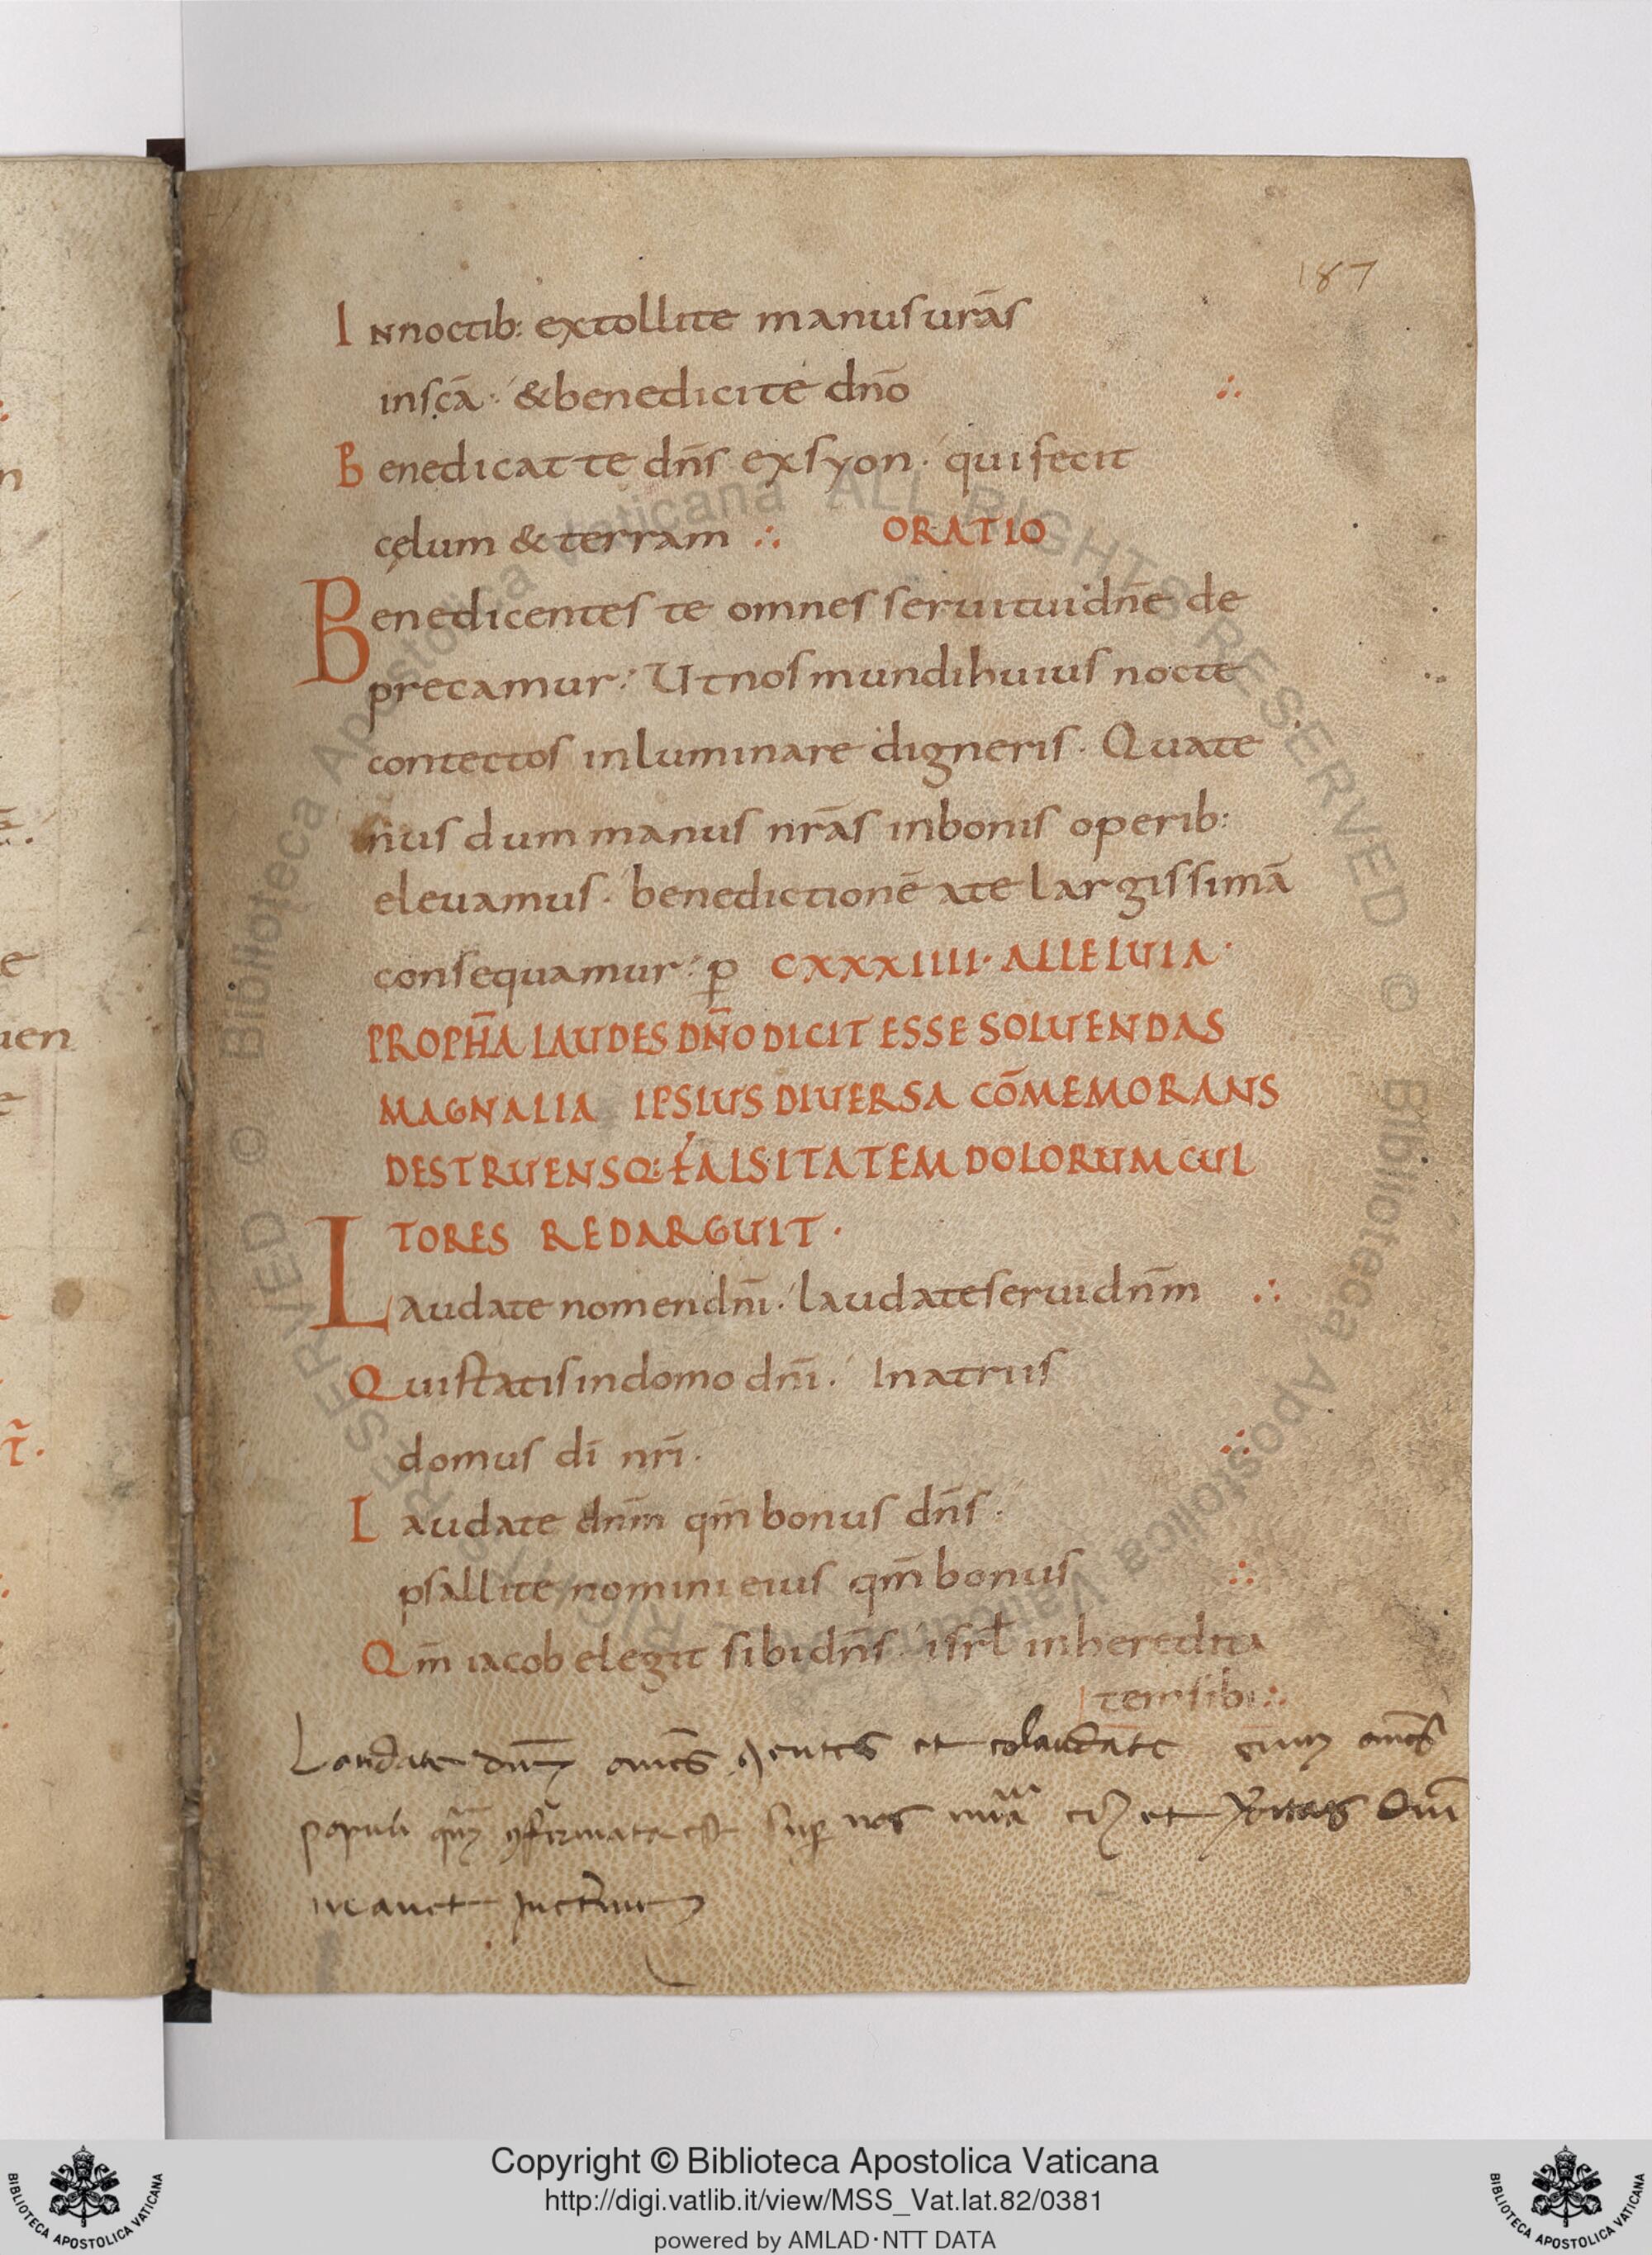 187
In noctib: extollite manus urās
in scā. & benedicite dn̄o ∴
Benedicat te dn̄s ex syon. qui fecit
cęlum & terram ∴ ORATIO
Benedicentes te omnes serui tui dn̄e de
precamur. Ut nos mundi huius nocte
contectos inluminare digneris. Quate
nus dum manus nrās in bonis operib:
eleuamus. benedictionē a te largissimā
consequamur. p̲ CXXXIIII. ALLELUIA.
PROPHĀ LAUDES DN̄O DICIT ESSE SOLUENDAS
MAGNALIA IPSIUS DIUERSA CŌMEMORANS
DESTRUENSQ: FALSITATEM DOLORUM CUL
TORES REDARGUIT.
Laudate nomen dn̄i. laudate serui dn̄m ∴
Qui statis in domo dn̄i. In atriis
domus dī nr̄i. ∴
Laudate dn̄m qm̄ bonus dn̄s.
psallite nomini eius qm̄ bonus ∴
Qm̄ iacob elegit sibi dn̄s. isrł in heredita
tem sibi ∴
Laudate dn̄m omēs gentes et colaudate eum omēs
populi qm̄ ꝯfirmata est sup̲ nos mīa ei et ur̄itas dn̄i
manet in eternum
Copyright © Biblioteca Apostolica Vaticana
http://digi.vatlib.it/view/MSS_Vat.lat.82/0381
powered by AMLAD·NTT DATA
BIBLIOTECA APOSTOLICA VATICANA
BIBLIOTECA APOSTOLICA VATICANA